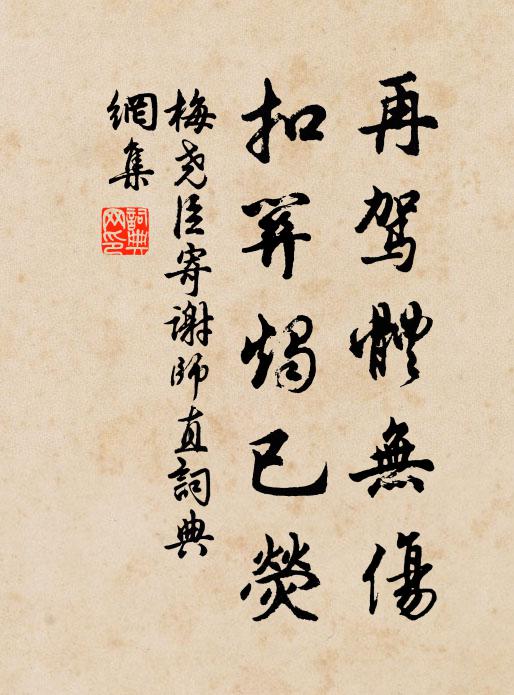 再駕體無傷
扣燭已熒
梅堯臣寄謝師直詞典
網集
詞典網印